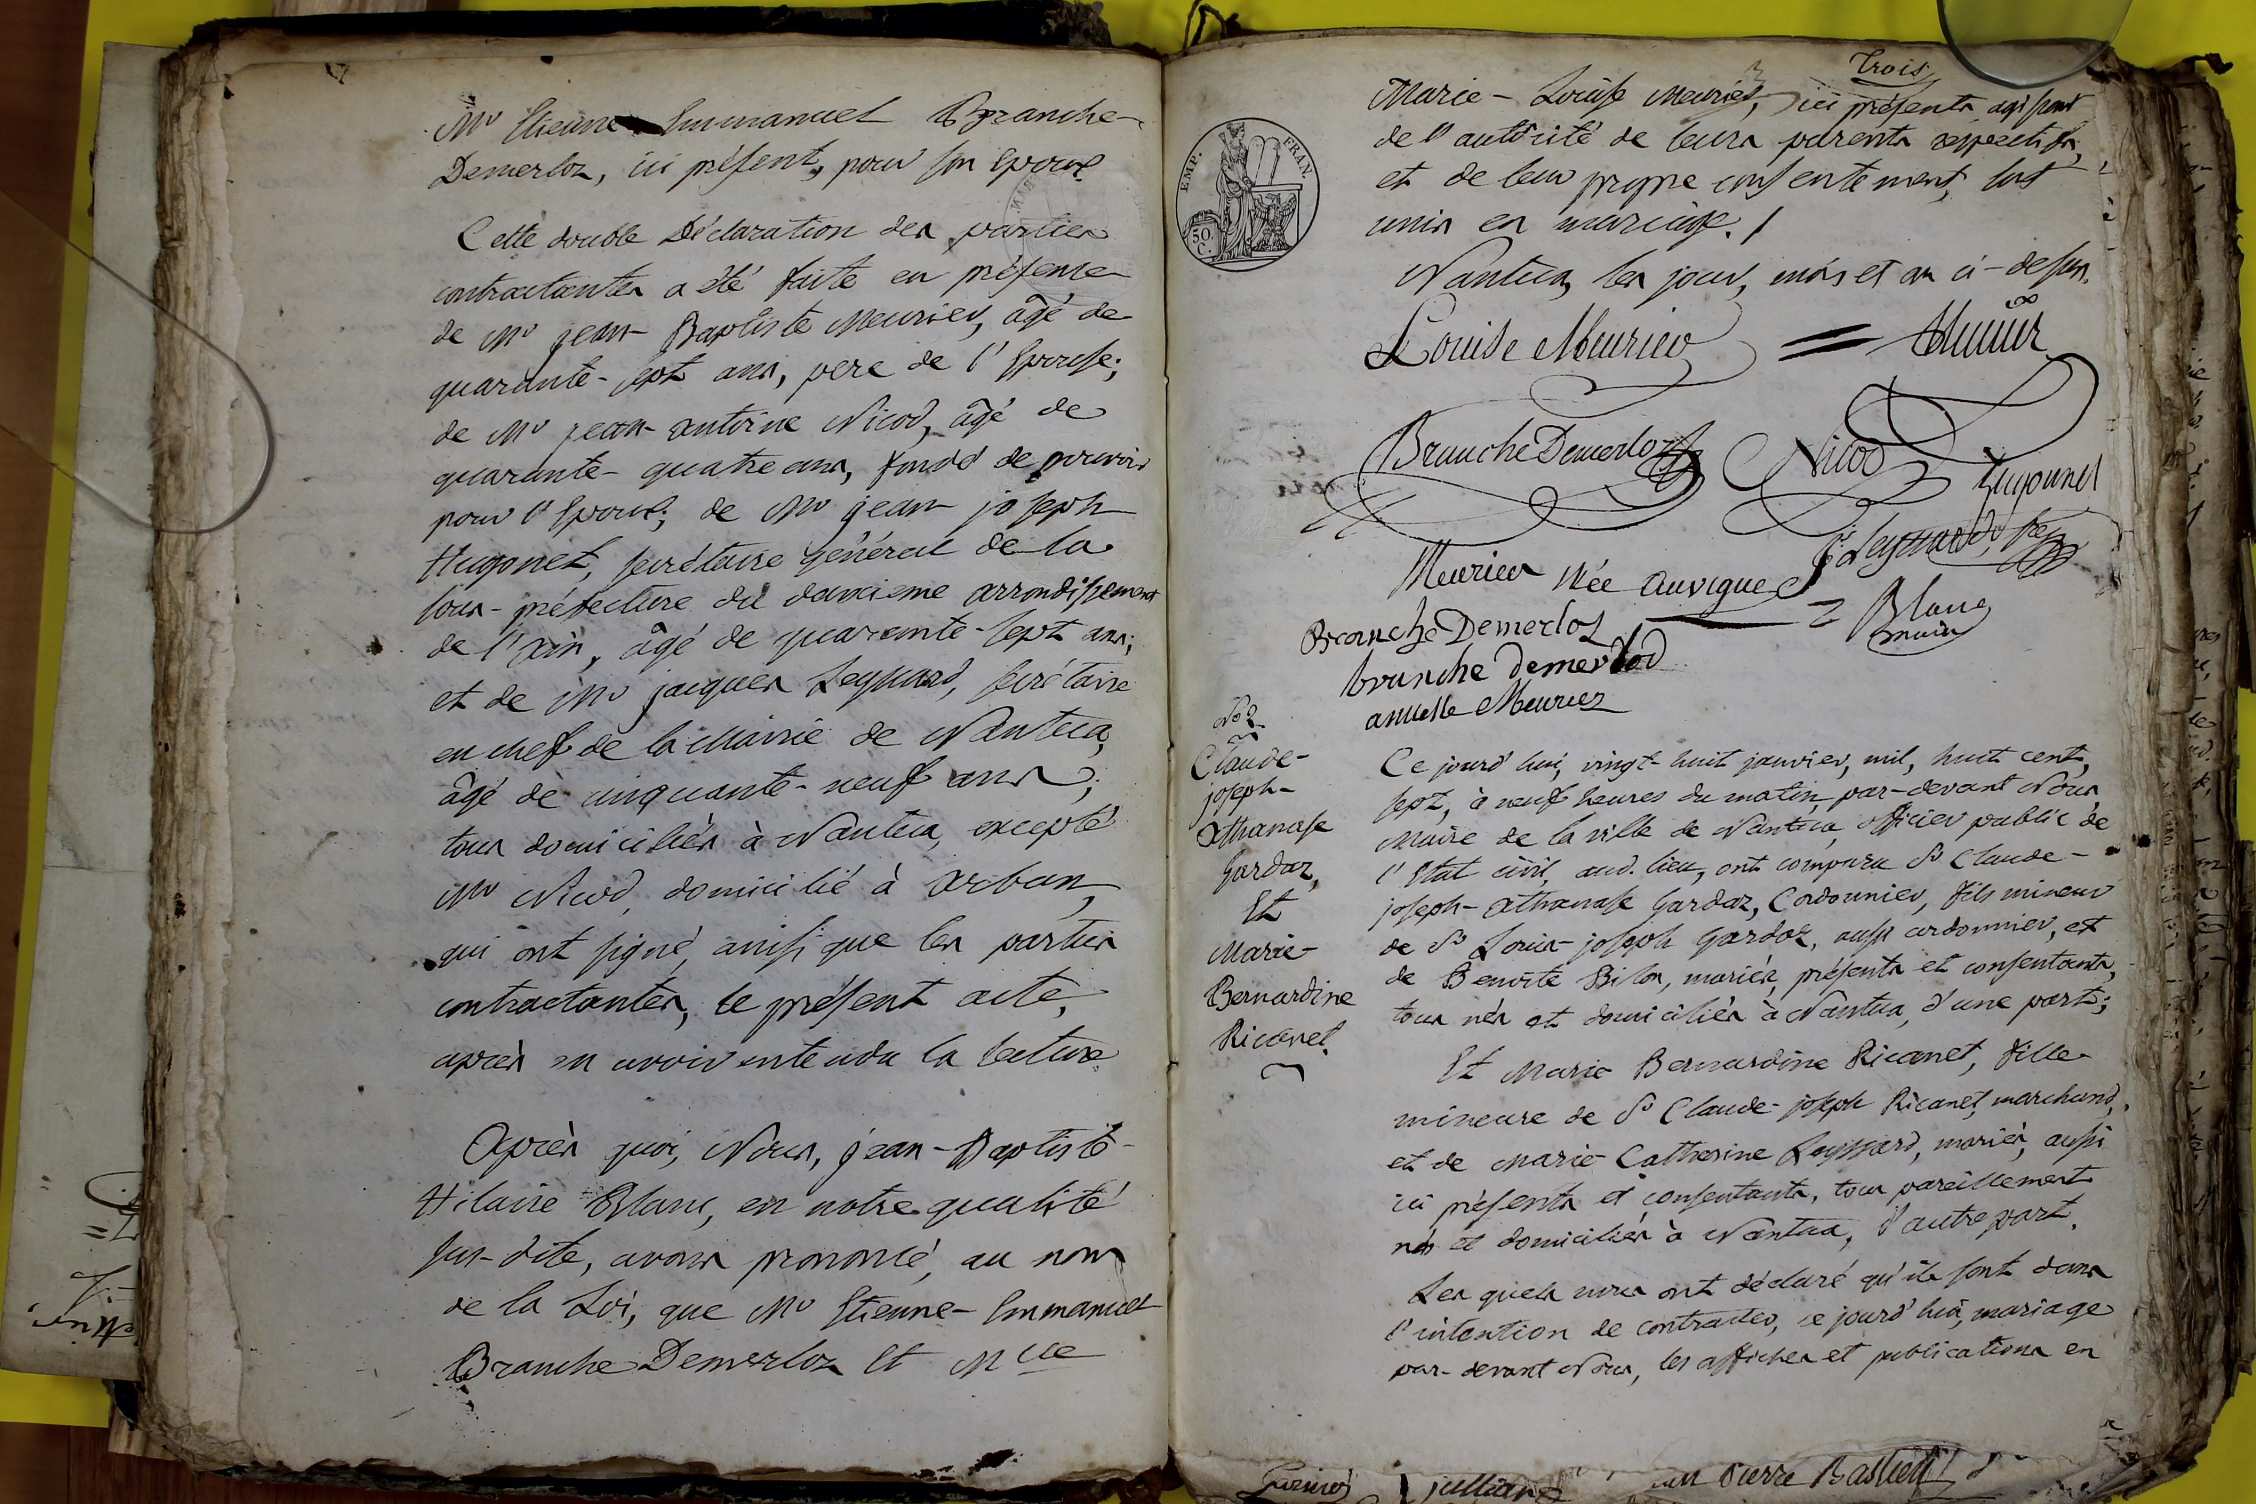 Mr Etienne Emmanuel Branche
Demerloz, ici présent, pour son Epouse
Cette double Déclaration des parties
contractantes a été faite en présence
de Mr jean-Baptiste Meurier, âgé de
quarante-sept ans, pere de l'Epouse;
de Mr jean-antoine Nicod, âgé de
quarante-quatre ans, fondé de pouvoir
pour l'Epoux; de Mr jean joseph
Hugonet, secrétaire général de la
sous-préfecture du deuxieme arrondissement
de l'ain, âgé de quarante-sept ans;
et de Mr jacques Leynard, secrétaire
en chef de la Mairie de Nantua,
âgé de cinquante-neuf ans;
tous domiciliés à Nantua, excepté
Mr Nicod, domicilié à arban,
qui ont signé, ainsi que les parties
contractantes, le présent acte,
après en avoir entendu la lecture
Après quoi, Nous, jean-Baptiste
Hilaire Blanc, en notre qualité
sus-dite, avons prononcé, au nom
de la Loi, que Mr Etienne-Emmanuel
Branche Demerloz Et Mlle
Trois
Marie-Louise Meurier, ici présents agissant
de l'autorité de leurs parents respectifs,
et de leur propre consentement, sont
unis en mariage.
Nantua, les jour, mois et an ci-dessus.
EMP. FRAN.
50. C.
Louise Meurier
Branche Demerloz Nicod
Hugonnet
Meurier Née auvigue
Blanc
maire
Branche Demerloz
branche demerlod
Meurier
No 2
Claude-
joseph-
athanase
Gardaz,
Et
Marie-
Bernardine
Ricanet
Ce jourd'hui, vingt-huit janvier, mil, huit cent,
sept, à neuf heures du matin par-devant Nous
Maire de la ville de Nantua, officier public de
l'Etat civil, aud. lieu, ont comparu Sr Claude-
joseph-athanase Gardaz, Cordonnier, fils mineur
de Sr Louis-joseph Gardaz, aussi cordonnier, et
de Benoite Billon, mariés, présents et consentants,
tous nés et domiciliés à Nantua, d'une part;
Et Marie Bernardine Ricanet, fille
mineure de Sr Claude-joseph Ricanet, marchand,
et de Marie Catherine Leyssard, mariés, aussi
ici présents et consentants, tous pareillement
nés et domiciliés à Nantua, d'autre part.
Les quels nous ont déclaré qu'ils sont dans
l'intention de contracter, ce jourd'hui, mariage
par-devant Nous, les affiches et publications en
pierre